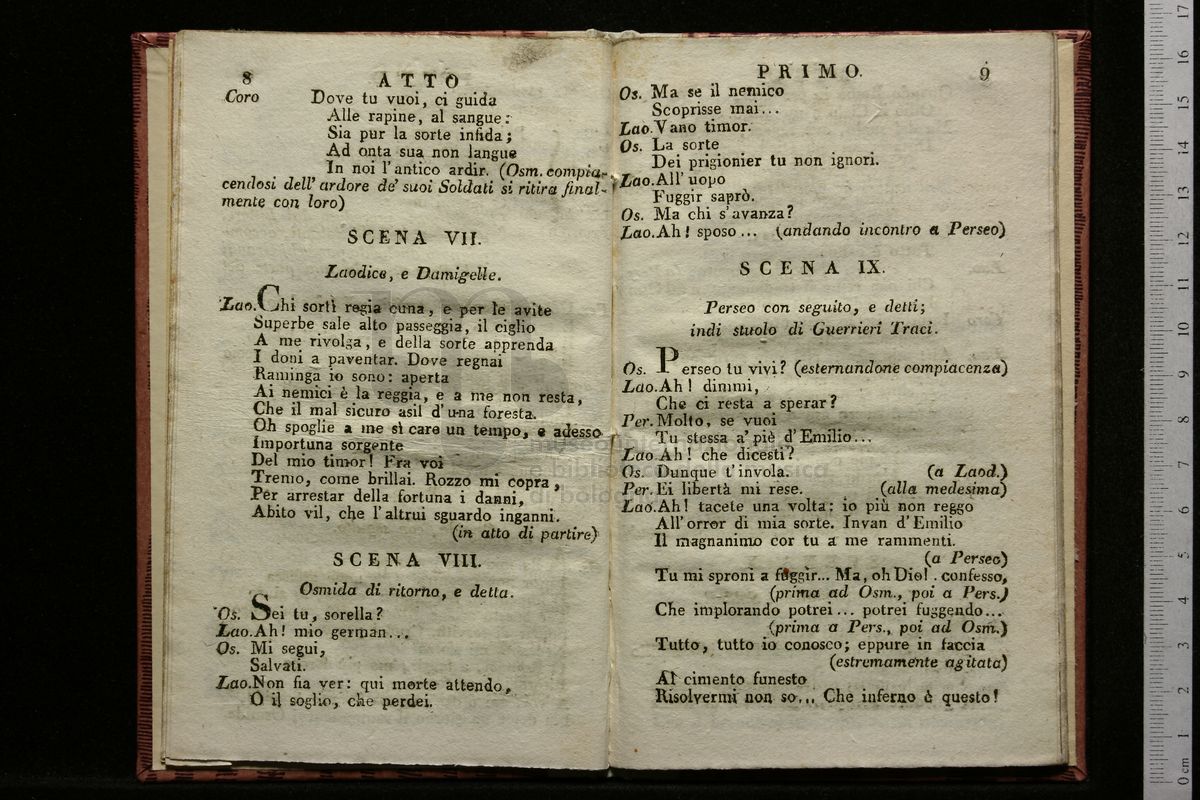 8 ATTO
Coro Dove tu vuoi, ci guida
Alle rapine, al sangue:
Sia pur la sorte infida;
Ad onta sua non langue
In noi l'antico ardir. (Osm. compia-
cendosi dell' ardore de' suoi Soldati si ritira final-
mente con loro)
SCENA VII.
Laodice, e Damigelle.
Lao. Chi sortì regia cuna, e per le avite
Superbe sale alto passeggia, il ciglio
A me rivolga, e della sorte apprenda
I doni a paventar. Dove regnai
Raminga io sono: aperta
Ai nemici è la reggia, e a me non resta,
Che il mal sicuro asil d'una foresta.
Oh spoglie a me sì care un tempo, e adesso
Importuna sorgente
Del mio timor! Fra voi
Tremo, come brillai. Rozzo mi copra,
Per arrestar della fortuna i danni,
Abito vil, che l'altrui sguardo inganni.
(in atto di partire)
SCENA VIII.
Osmida di ritorno, e detta.
Os. Sei tu, sorella?
Lao. Ah! mio german...
Os. Mi segui,
Salvati.
Lao. Non fia ver: qui morte attendo,
O il soglio, che perdei.
PRIMO. 9
Os. Ma se il nemico
Scoprisse mai...
Lao. Vano timor.
Os. La sorte
Dei prigionier tu non ignori.
Lao. All' uopo
Fuggir saprò.
Os. Ma chi s'avanza?
Lao. Ah! sposo... (andando incontro a Perseo)
SCENA IX.
Perseo con seguito, e detti;
indi stuolo di Guerrieri Traci.
Os. Perseo tu vivi? (esternandone compiacenza)
Lao. Ah! dimmi,
Che ci resta a sperar?
Per. Molto, se vuoi
Tu stessa a' piè d'Emilio...
Lao Ah! che dicesti?
Os. Dunque t'invola. (a Laod.)
Per. Ei libertà mi rese. (alla medesima)
Lao. Ah! tacete una volta: io più non reggo
All'orror di mia sorte. Invan d'Emilio
Il magnanimo cor tu a me rammenti.
(a Perseo)
Tu mi sproni a fuggir... Ma, oh Dio!. confesso,
(prima ad Osm., poi a Pers.)
Che implorando potrei... potrei fuggendo...
(prima a Pers., poi ad Osm.)
Tutto, tutto io conosco; eppure in faccia
(estremamente agitata)
Al cimento funesto
Risolvermi non so... Che inferno è questo!
0 cm 1 2 3 4 5 6 7 8 9 10 11 12 13 14 15 16 17